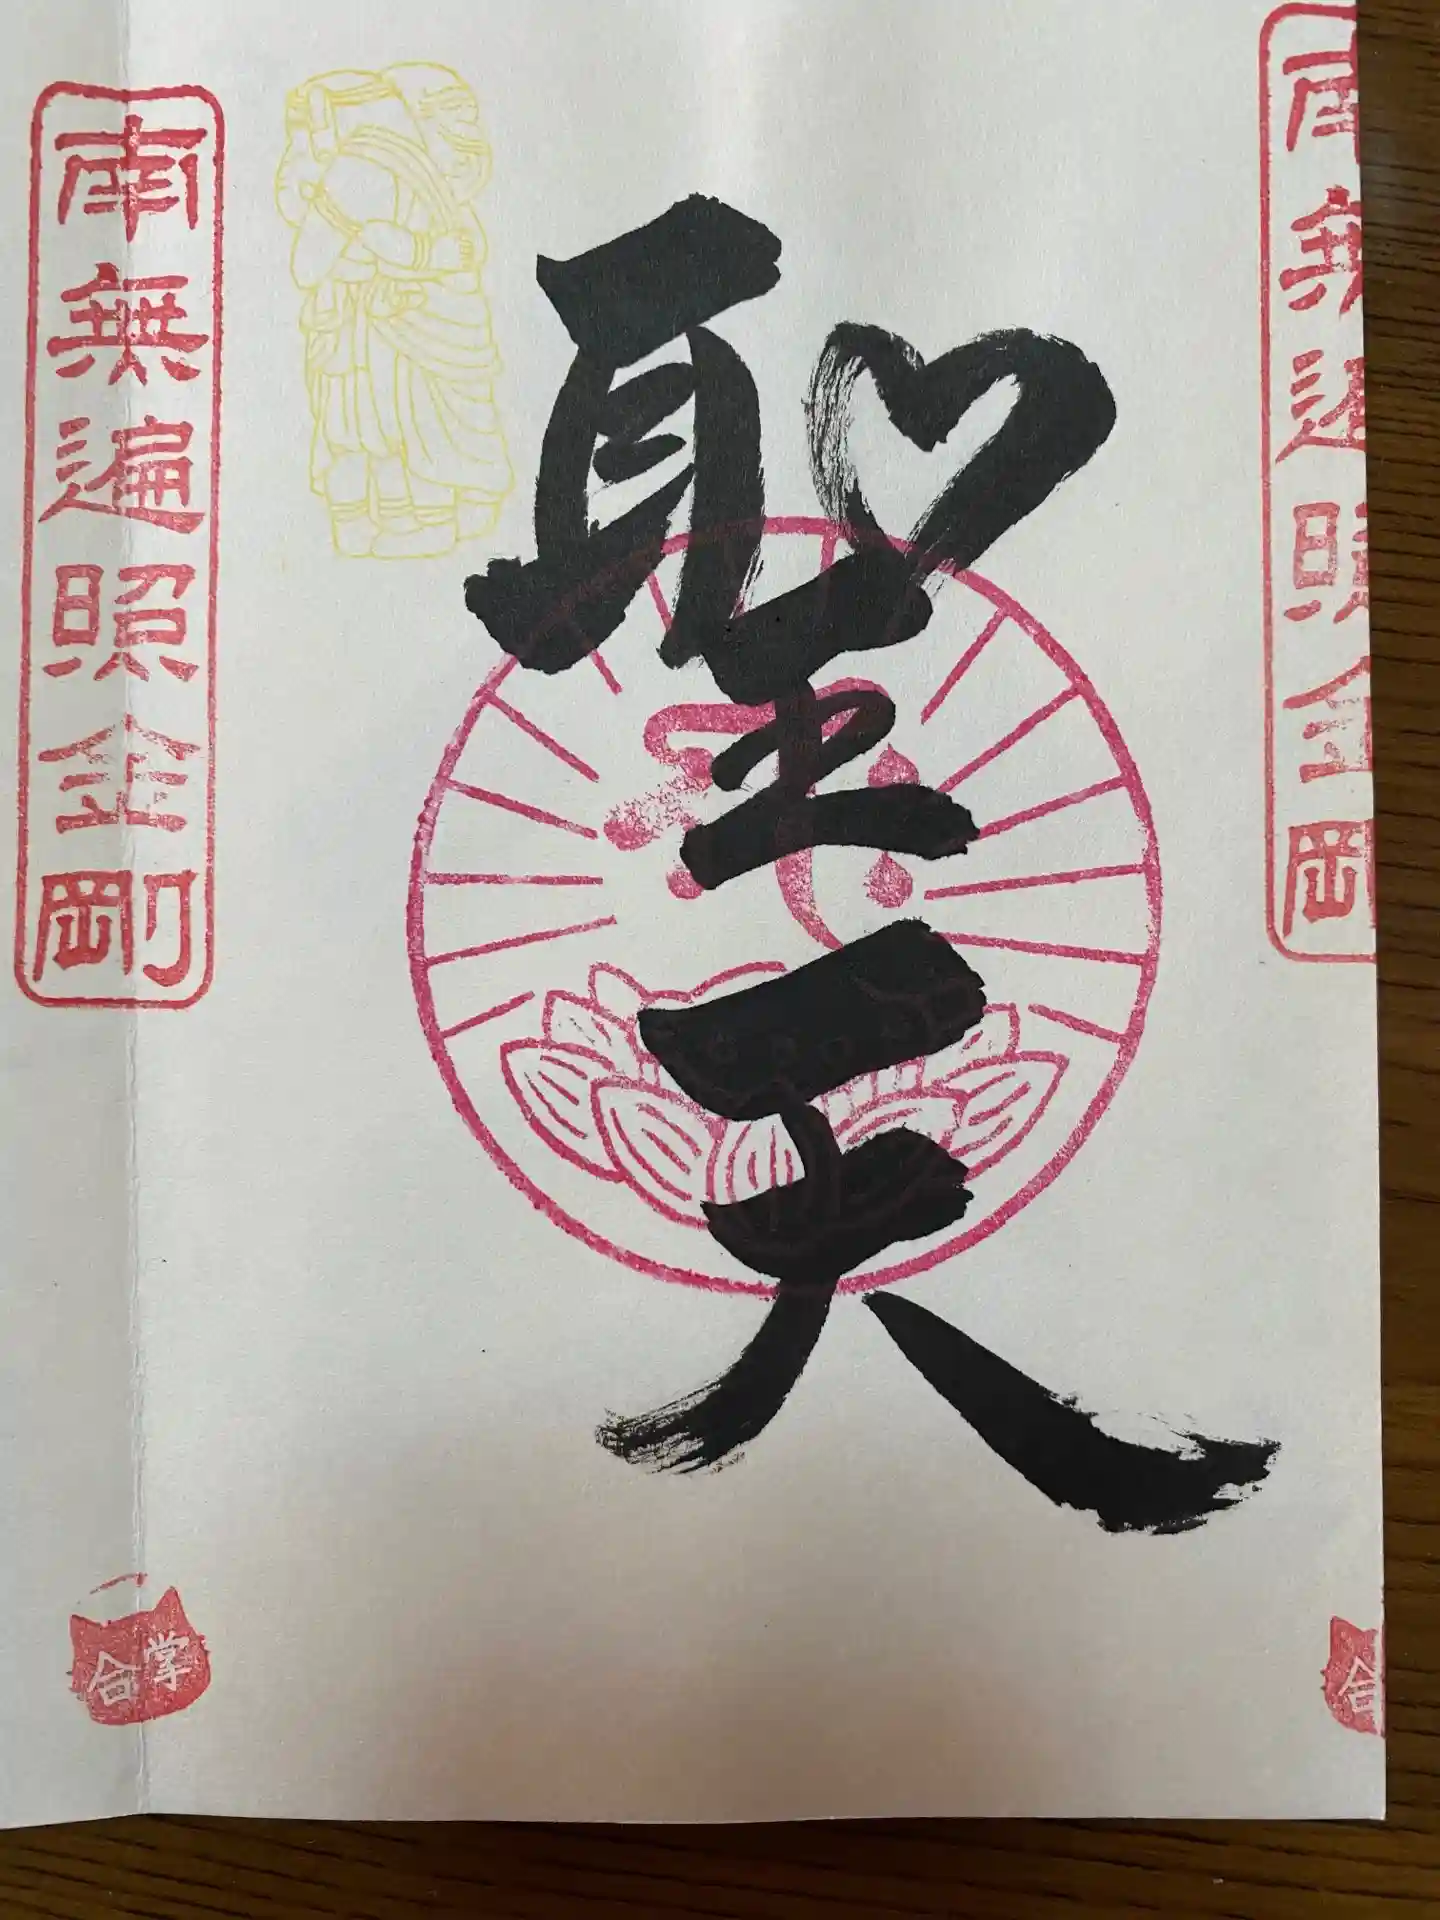 聖天
南無遍照金剛
合掌
南無遍照金剛
合